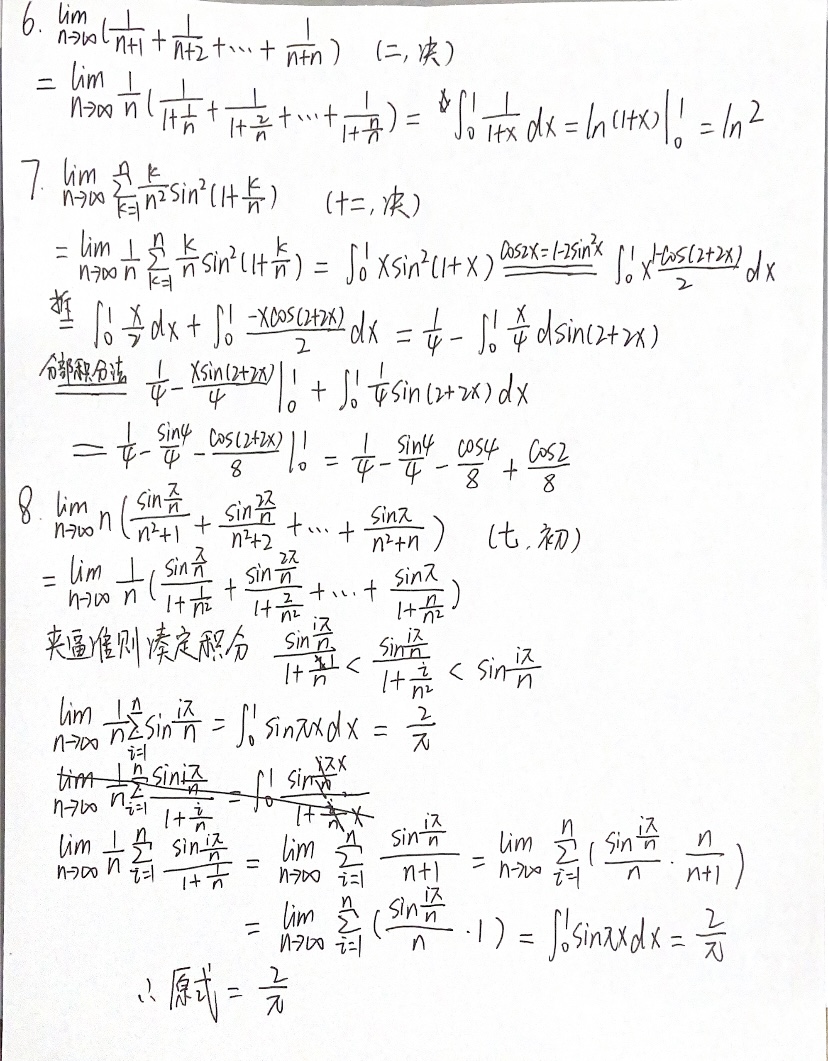 6. lim n→∞ (1/(n+1) + 1/(n+2) + ⋯ + 1/(n+n)) (二, 决)
= lim n→∞ 1/n (1/(1+1/n) + 1/(1+2/n) + ⋯ + 1/(1+n/n)) = ∫₀¹ 1/(1+x) dx = ln(1+x)|₀¹ = ln2
7. lim n→∞ ∑_{k=1}^{n} k/n² sin²(1+k/n) (十二, 决)
= lim n→∞ 1/n ∑_{k=1}^{n} k/n sin²(1+k/n) = ∫₀¹ x sin²(1+x) cos2x=1-2sin²x ∫₀¹ x (1-cos(2+2x))/2 dx
拆 = ∫₀¹ x/2 dx + ∫₀¹ -xcos(2+2x)/2 dx = 1/4 - ∫₀¹ x/4 dsin(2+2x)
分部积分法 1/4 - xsin(2+2x)/4 |₀¹ + ∫₀¹ 1/4 sin(2+2x) dx
= 1/4 - sin4/4 - cos(2+2x)/8 |₀¹ = 1/4 - sin4/4 - cos4/8 + cos2/8
8. lim n→∞ n (sin(π/n)/(n²+1) + sin(2π/n)/(n²+2) + ⋯ + sinπ/(n²+n)) (七, 初)
= lim n→∞ 1/n (sin(π/n)/(1+1/n²) + sin(2π/n)/(1+2/n²) + ⋯ + sinπ/(1+n/n²))
夹逼准则凑定积分 sin(iπ/n)/(1+1/n) < sin(iπ/n)/(1+i/n²) < sin(iπ/n)
lim n→∞ 1/n ∑_{i=1}^{n} sin(iπ/n) = ∫₀¹ sinπx dx = 2/π
lim n→∞ 1/n ∑_{i=1}^{n} sin(iπ/n)/(1+1/n) = lim n→∞ ∑_{i=1}^{n} sin(iπ/n)/(n+1) = lim n→∞ ∑_{i=1}^{n} (sin(iπ/n)/n · n/(n+1))
= lim n→∞ ∑_{i=1}^{n} (sin(iπ/n)/n · 1) = ∫₀¹ sinπx dx = 2/π
∴ 原式 = 2/π